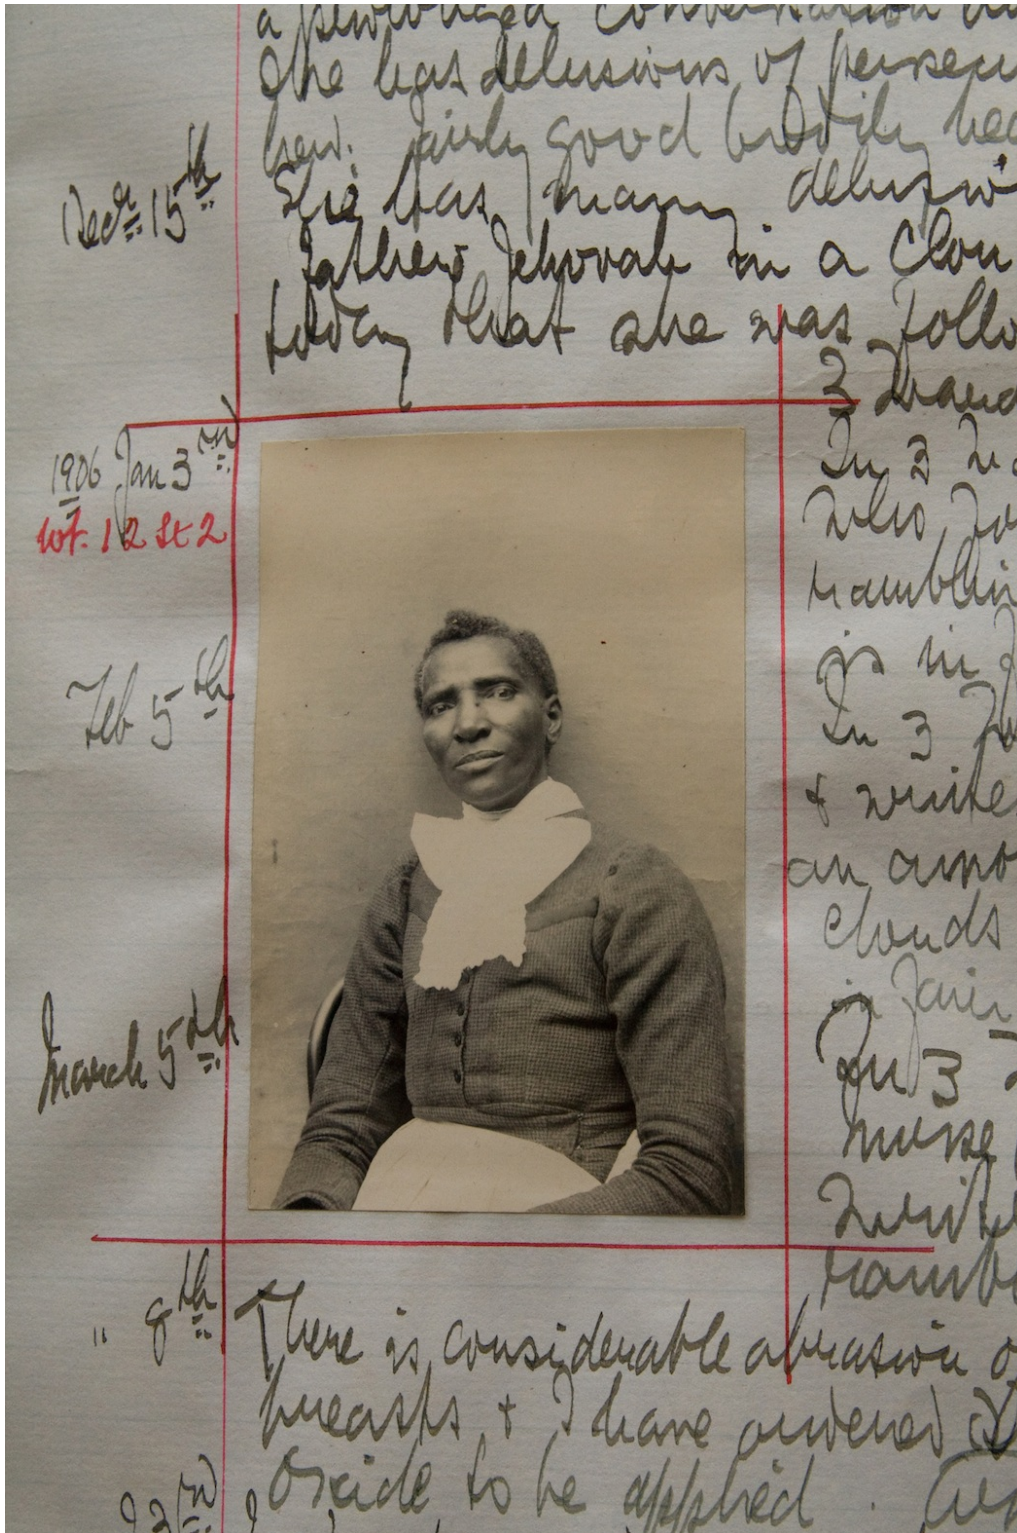 a prolonged conversation
She has delusions of persecu
her. Fairly good bodily hea
Decr. 15th She has many delusi
Father Jehovah in a Clou
today that she was follo
3
1906 Jan 3rd In 3
wt. 12 st 2 who
ramblin
Feb 5th is in
In 3
& write
an
clouds
in fair
March 5th In 3
nurse
write
ramb
" 8th There is considerable abrasion o
breasts & I have ordered
Oxide to be applied.
23rd